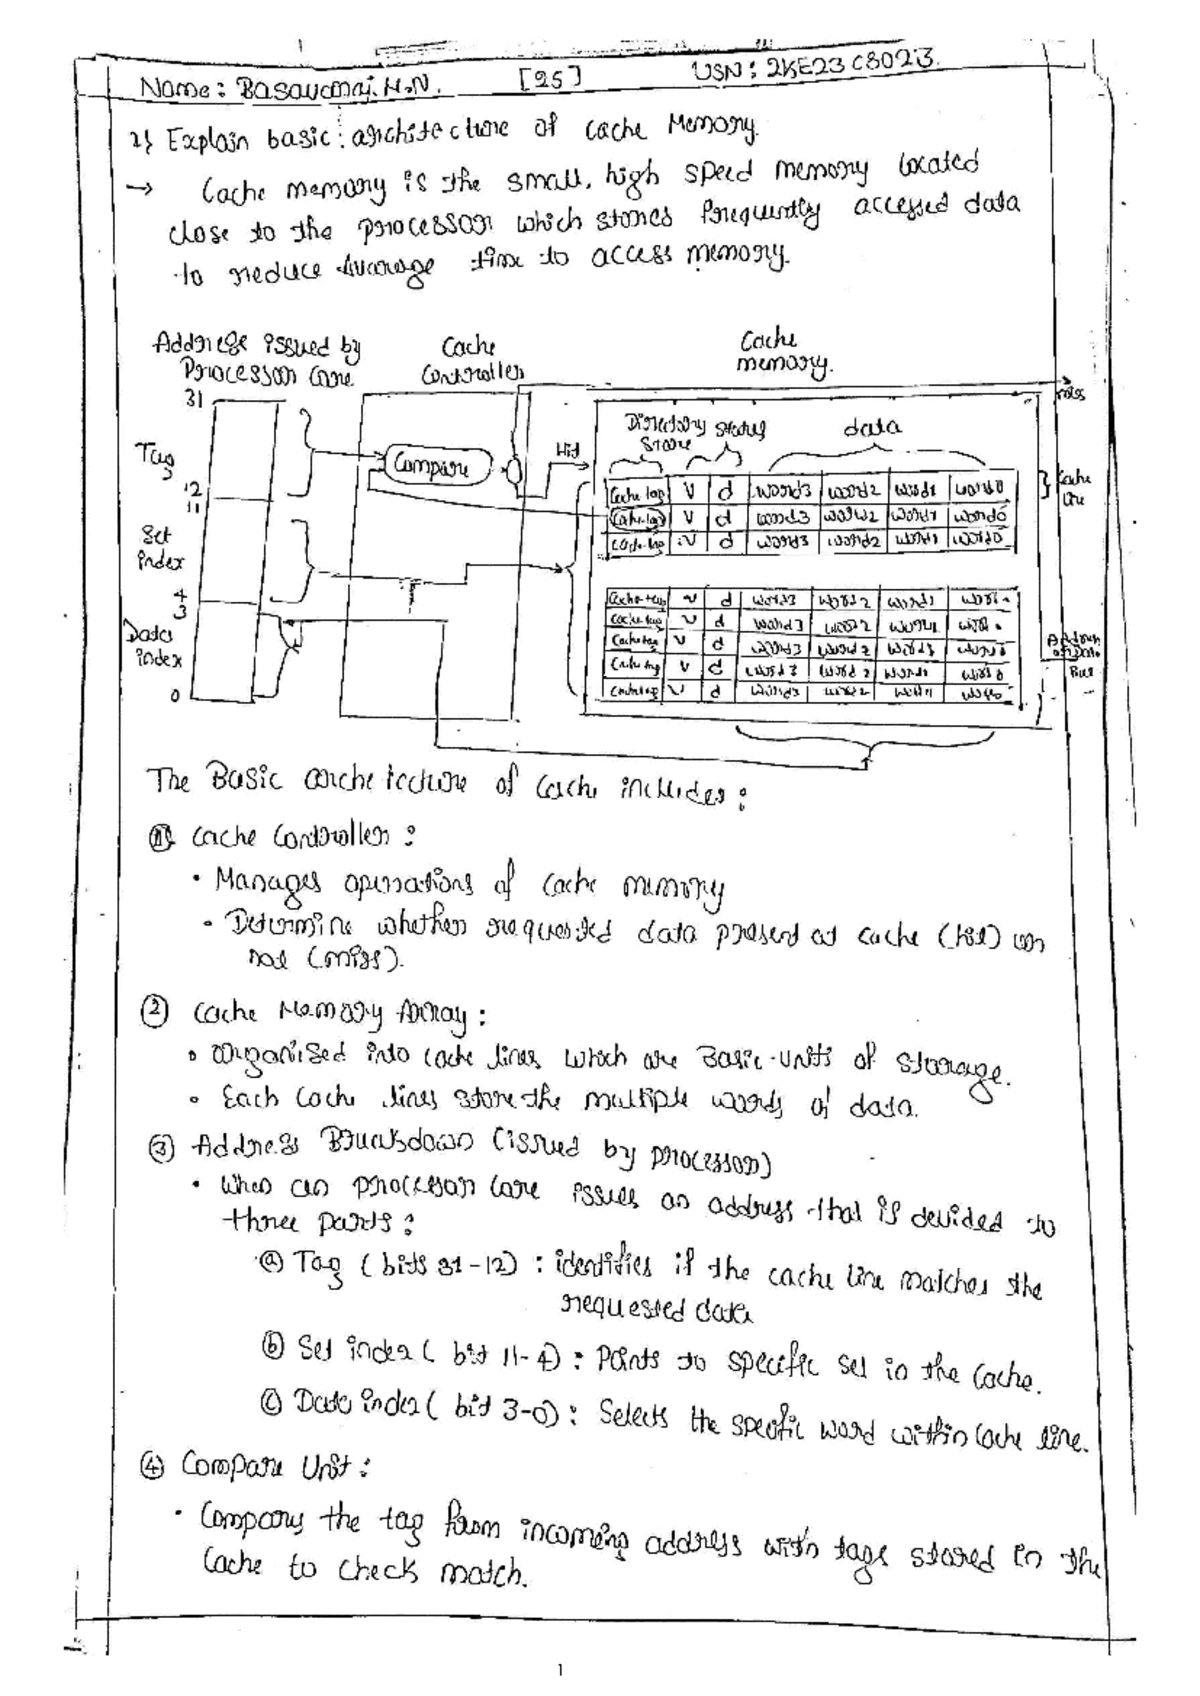 Name: Basavaraj.H.N. [25] USN: 2KE23CS023
2} Explain basic architecture of Cache Memory.
→ Cache memory is the small, high speed memory located
close to the processor which stores frequently accessed data
to reduce Average time to access memory.
Address issued by
Processor Core
Cache
Controller
Cache
memory.
31
Tag
12
11
Set
index
4
3
Data
index
0
Compare
Hit
Directory
Store
Status
data
Cache tag V d word3 word2 word1 word0
Cache tag V d word3 word2 word1 word0
Cache tag V d word3 word2 word1 word0
Cache
line
Cache tag V d word3 word2 word1 word0
Cache tag V d word3 word2 word1 word0
Cache tag V d word3 word2 word1 word0
Cache tag V d word3 word2 word1 word0
Cache tag V d word3 word2 word1 word0
The Basic architecture of Cache includes:
① Cache Controller:
• Manages operations of Cache memory
• Determine whether requested data present at cache (hit) or
not (miss).
② Cache Memory Array:
• Organised into cache lines which are Basic units of storage.
• Each Cache lines store the multiple words of data.
③ Address Breakdown (issued by processor)
• When an processor core issues an address that is devided to
three parts:
ⓐ Tag (bits 31-12): identifies if the cache line matches the
requested data
ⓑ Set index (bit 11-4): Points to specific set in the Cache.
ⓒ Data index (bit 3-0): Selects the specific word within Cache line.
④ Compare Unit:
• Compars the tag from incoming address with tags stored in the
Cache to check match.
1